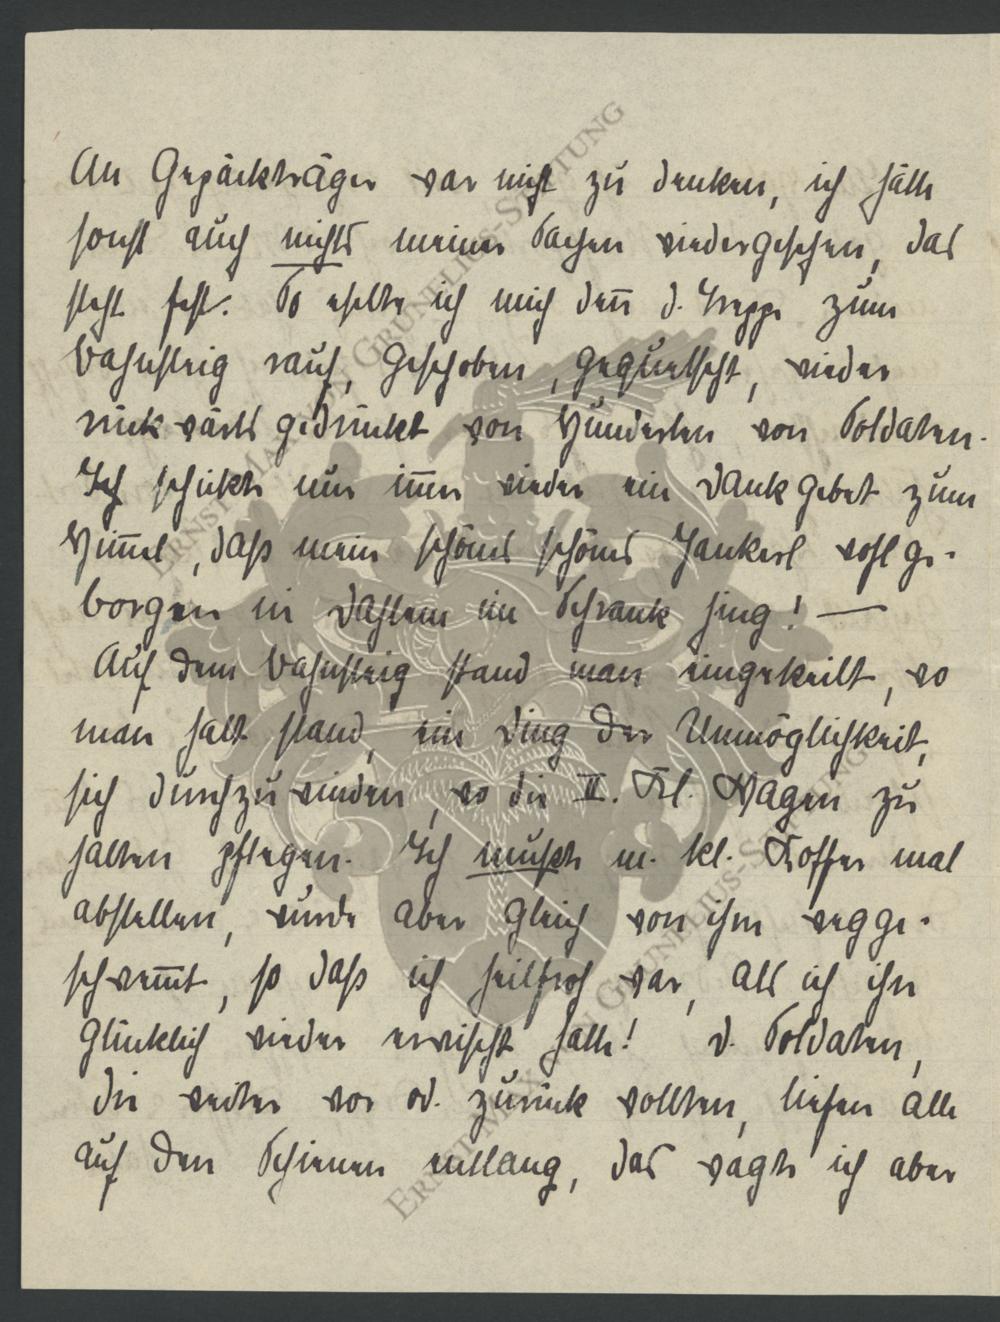 An Gepäckträger war nicht zu denken, ich hätte
sonst auch nichts meiner Sachen wiedergesehen, das
steht fest. So eselte ich mich den̅ d. Treppe zum
Bahnsteig rauf, geschoben, gequetscht, wieder
rückwärts gedrückt von Hunderten von Soldaten.
Ich schickte nur im̅er wieder ein Dankgebet zum
Him̅el, daß mein schönes schönes Jankerl wohlge-
borgen in Dahlem im Schrank hing! —
Auf dem Bahnsteig stand man eingekeilt, wo
man halt stand, ein Ding der Unmöglichkeit,
sich durchzuwinden, wo die II. Kl. Wagen zu
halten pflegen. Ich mußte m. kl. Koffer mal
abstellen, wurde aber gleich von ihm wegge-
schwem̅t, so daß ich heilfroh war, als ich ihn
glücklich wieder erwischt hatte! D. Soldaten,
die weiter vor od. zurück wollten, liefen alle
auf den Schienen entlang, das wagte ich aber
ERNST MAX VON GRUNELIUS-STIFTUNG
ERNST MAX VON GRUNELIUS-STIFTUNG